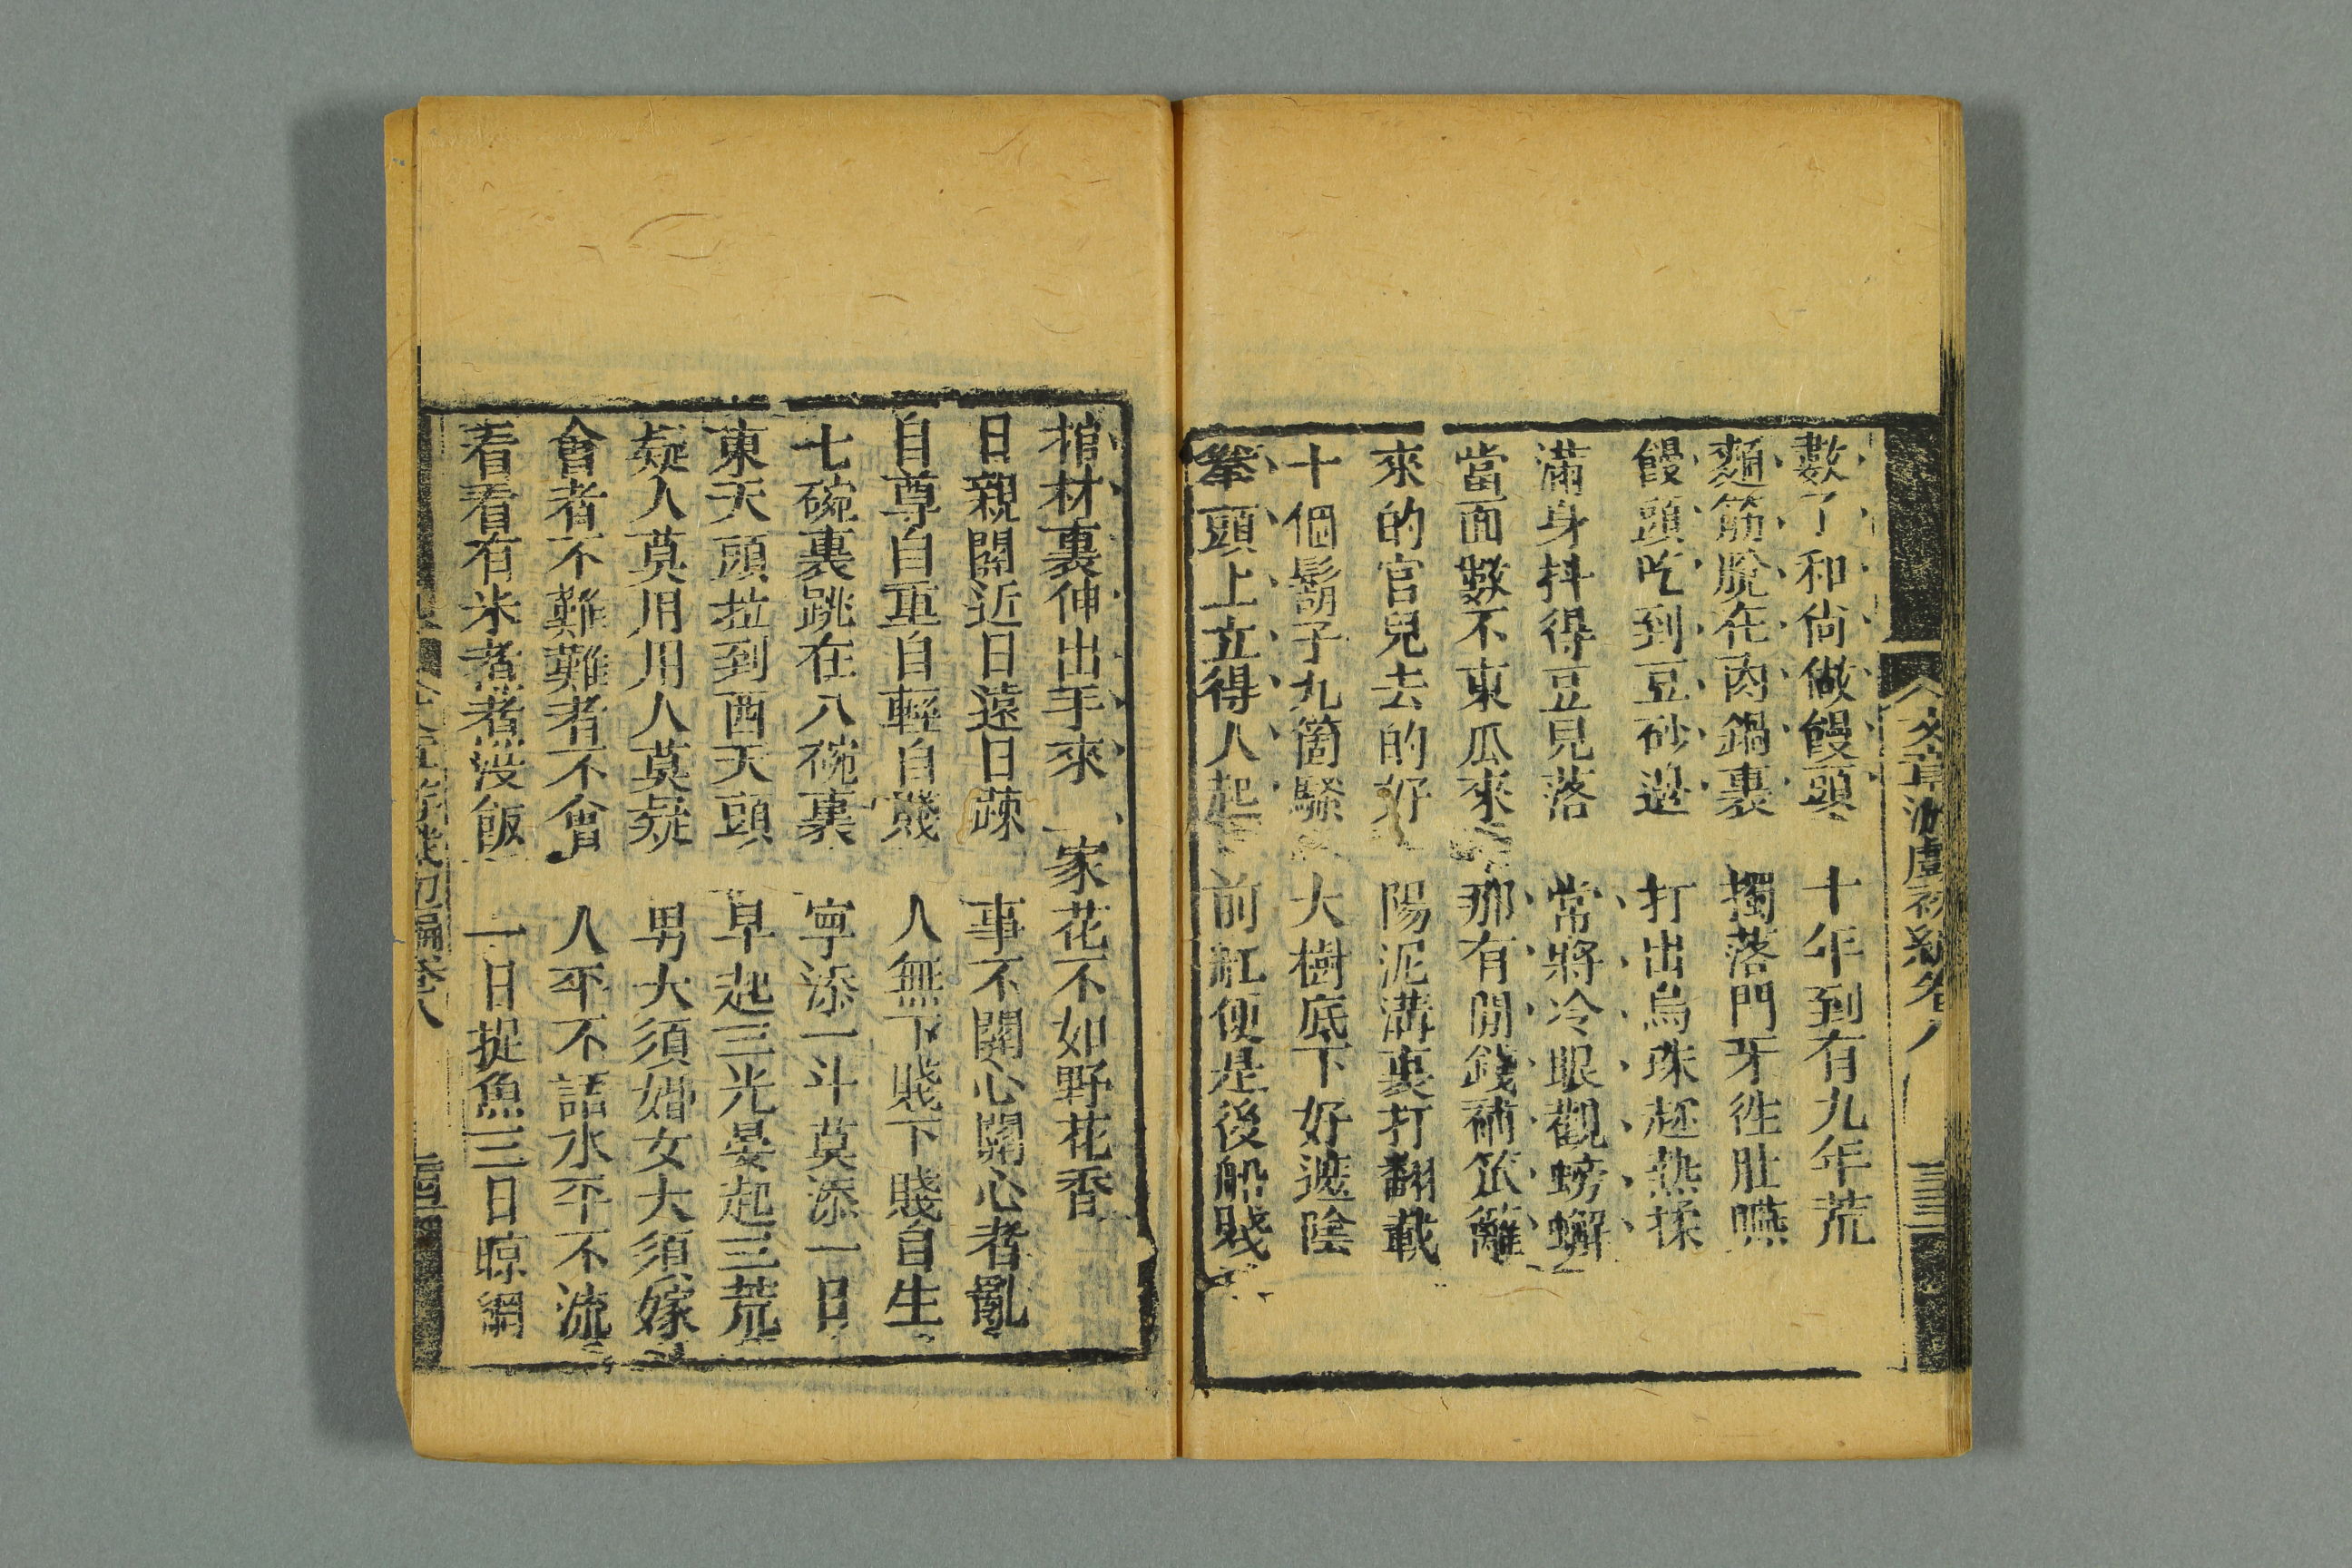 數了和尙做饅頭　十年到有九年荒
麵筋脫在肉鍋裏　擉落門牙徃肚嚥
饅頭吃到豆砂邊　打出烏珠趕熱揉
滿身抖得豆見落　常將冷眼觀螃蠏
當面數不東瓜來　那有閒錢補笊籬
來的官兒去的好　陽泥溝裏打翻載
十個鬍子九箇騷　大樹底下好遮陰
拳頭上立得人起　前缸便是後船賤
棺材裏伸出手來　家花不如野花香
日親關近日遠日疎　事不關心關心者亂
自尊自重自輕自賤　人無下賤下賤自生
七碗裏跳在八碗裏　寧添一斗莫添一日
東天頭拉到西天頭　早起三光晏起三荒
疑人莫用用人莫疑　男大須婚女大須嫁
會者不難難者不會　人平不語水平不流
看看有米煮煮没飯　一日捉魚三日晾網